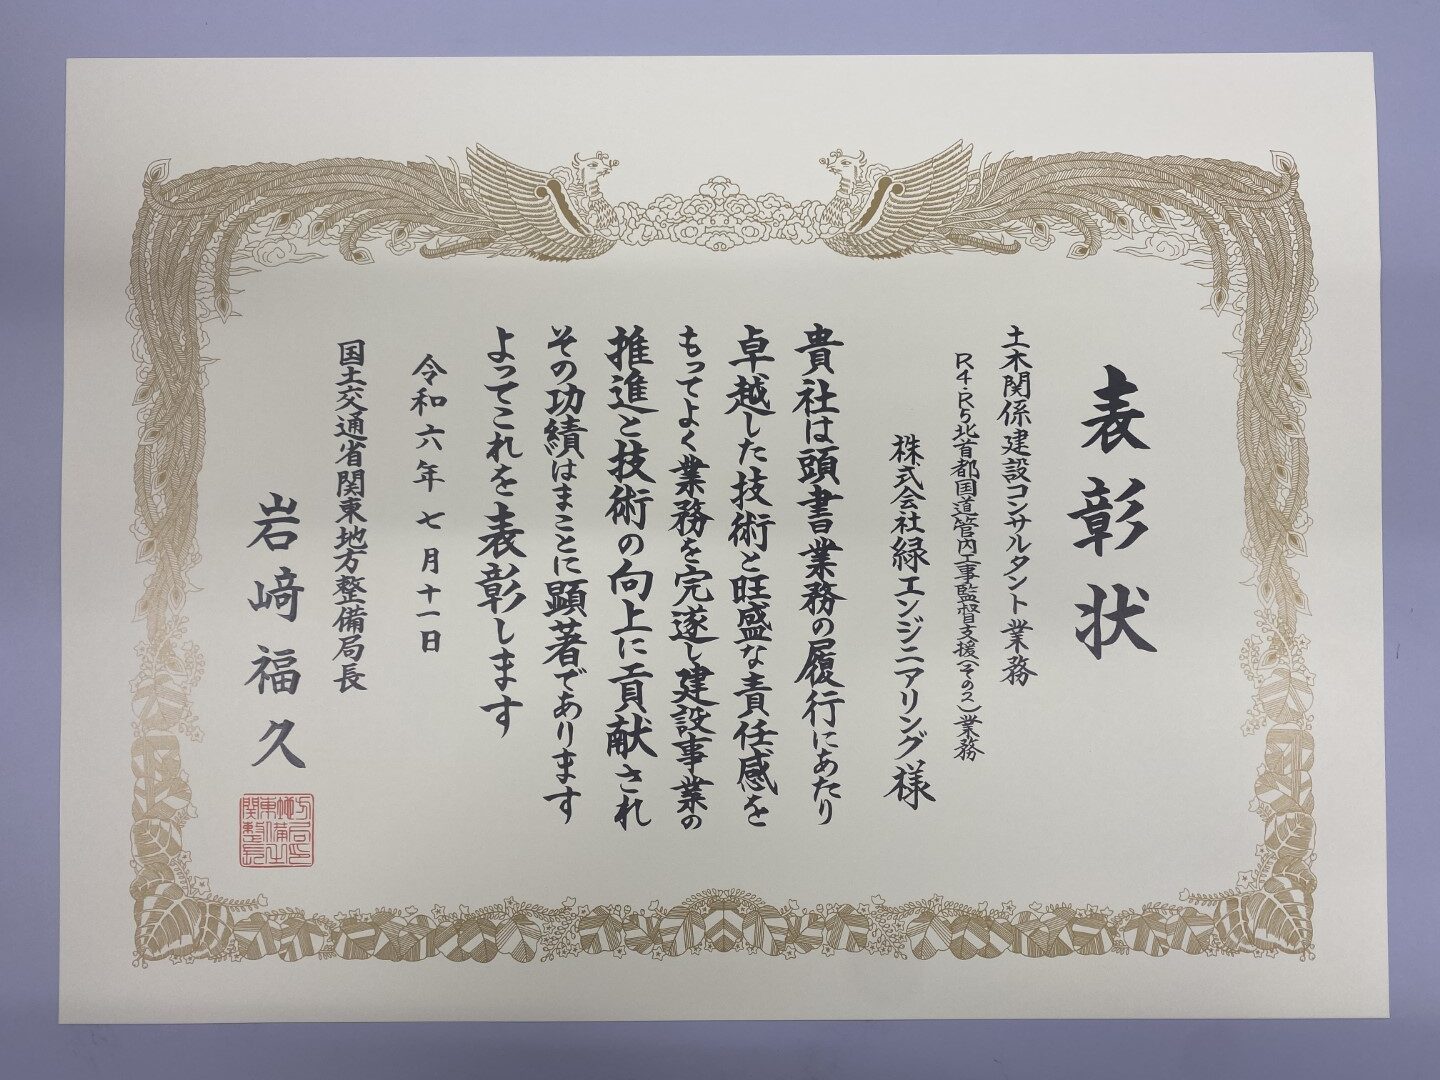 表彰状
土木関係建設コンサルタント業務
R4・R5北首都国道管内工事監督支援(その2)業務
株式会社緑エンジニアリング様
貴社は頭書業務の履行にあたり
卓越した技術と旺盛な責任感を
もってよく業務を完遂し建設事業の
推進と技術の向上に貢献され
その功績はまことに顕著であります
よってこれを表彰します
令和六年七月十一日
国土交通省関東地方整備局長
岩﨑福久